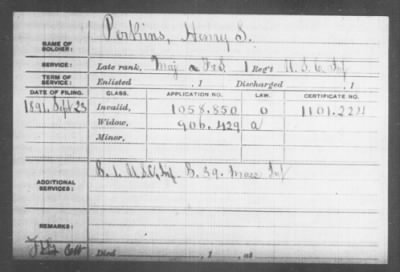 NAME OF SOLDIER: Perkins, Henry S.
SERVICE: Late rank, Maj & F&S 1 Reg't U.S.C. Inf
TERM OF SERVICE: Enlisted , 1 Discharged , 1
DATE OF FILING. CLASS. APPLICATION NO. LAW. CERTIFICATE NO.
1891, Sept 23 Invalid, 1058.850 O 1101.224
Widow, 906.429 a
Minor,
ADDITIONAL SERVICES: B. 1. U.S.C. Inf. B. 39. Mass Inf
REMARKS:
Died , 1 , at